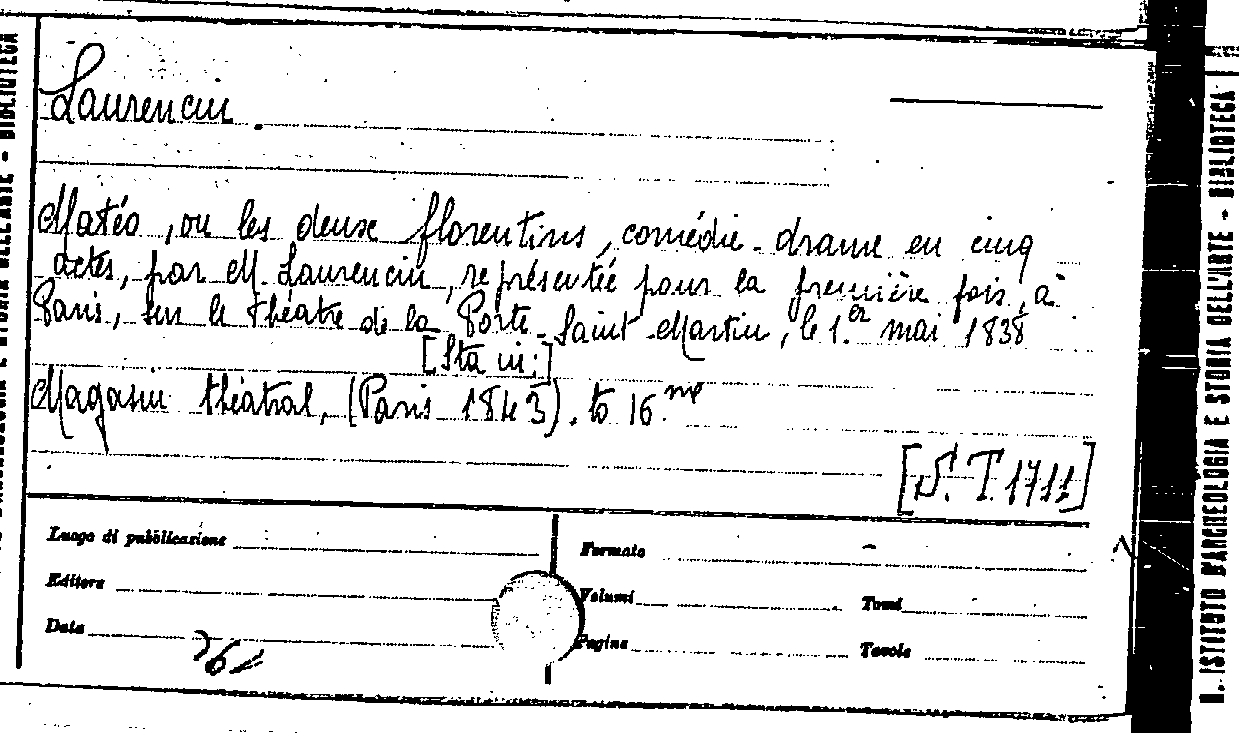 Laurencin.
Matéo, ou les deux florentins, comédie-drame en cinq
actes, par M. Laurencin, représentée pour la première fois, à
Paris, sur le théatre de la Porte-Saint-Martin, le 1.er mai 1838
[Sta in:]
Magasin théatral, (Paris 1843), to 16.me
[S. T. 1711]
Luogo di pubblicazione
Formato
Editore
Volumi
Tomi
Data
Pagine
Tavole
R. ISTITUTO D'ARCHEOLOGIA E STORIA DELL'ARTE - BIBLIOTECA